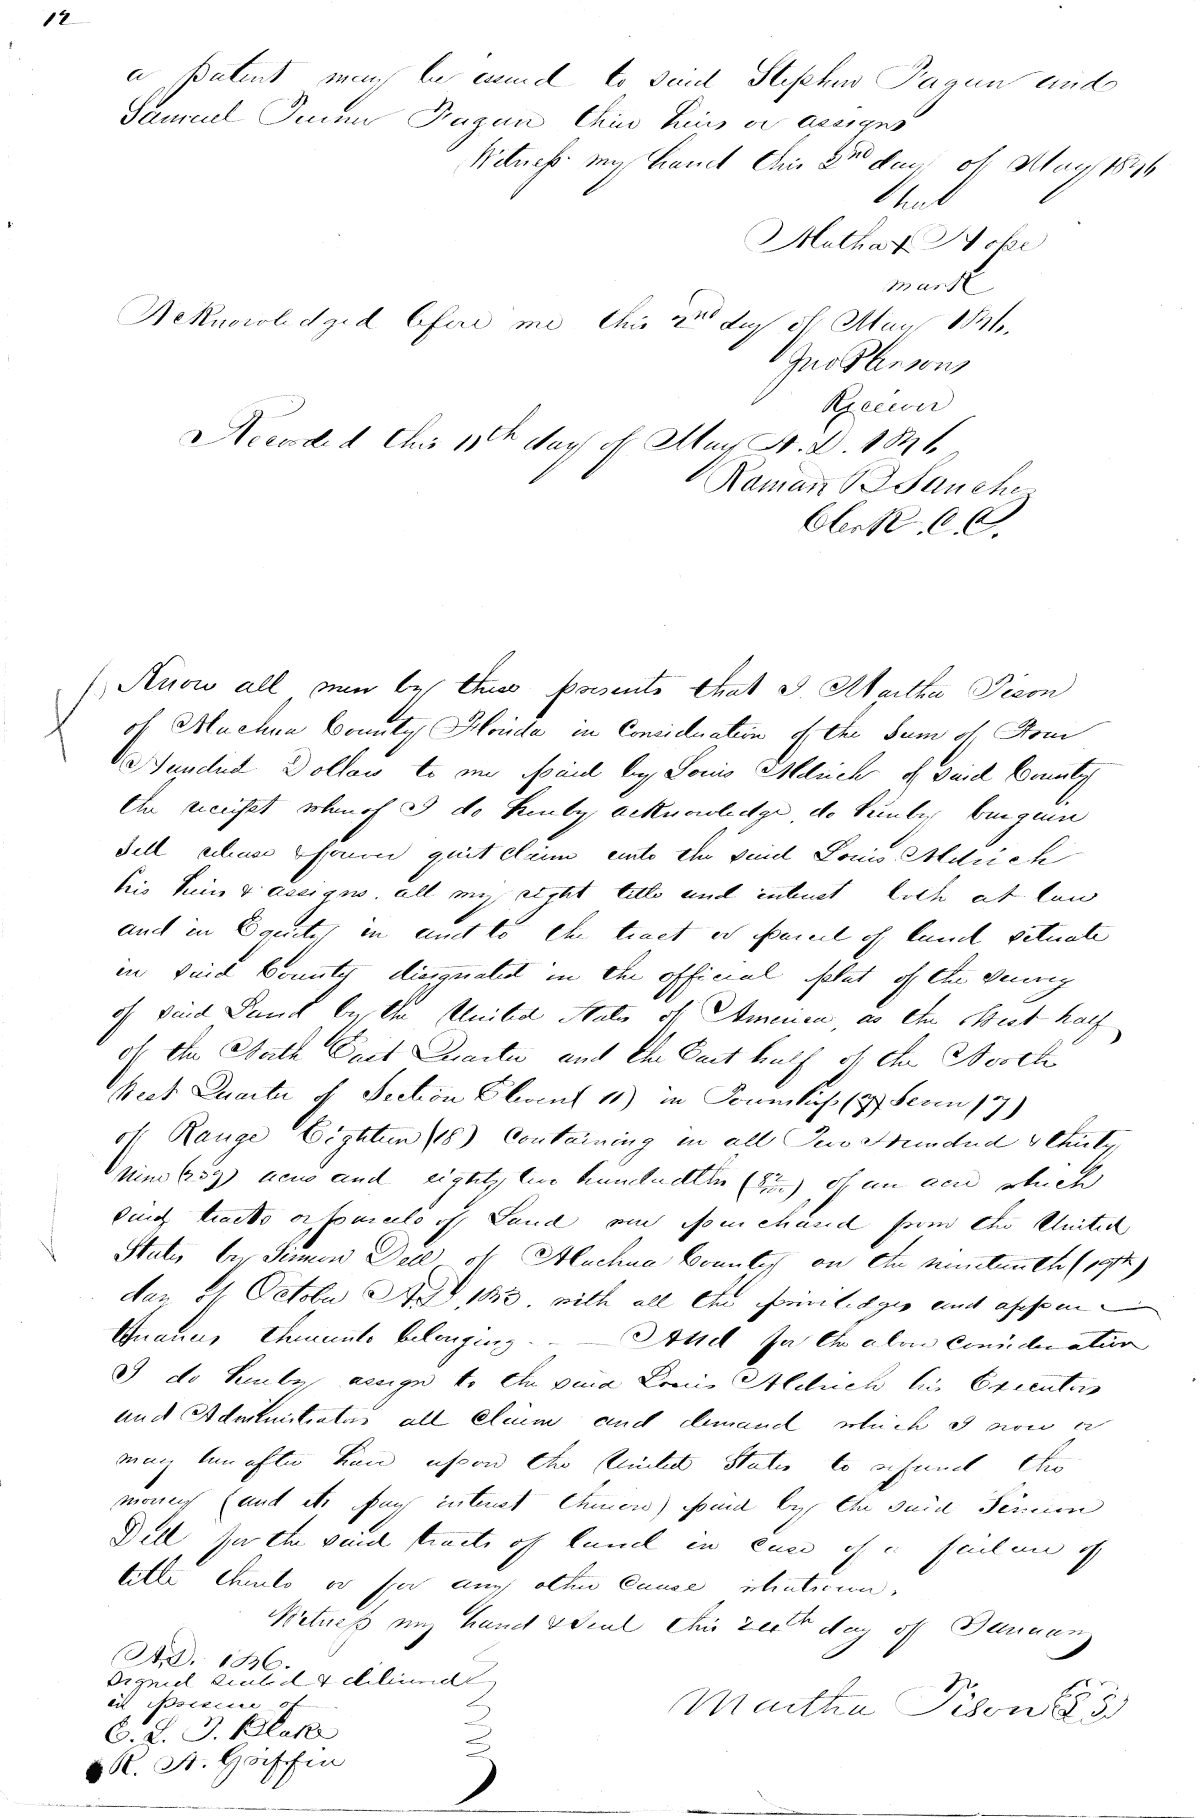 12
a patent may be issued to said Stephen Fagan and
Samuel Fagan their heirs or assigns
Witness my hand this 2nd day of May 1846
her
Martha x Hope
mark
Acknowledged before me this 2nd day of May 1846.
Jno Parsons
Receiver
Recorded this 11th day of May A.D. 1846
Raman B Sanchez
Clerk C.C.
Know all men by these presents that I Martha Pison
of Alachua County Florida in Consideration of the Sum of Four
Hundred Dollars to me paid by Louis Aldrich of said County
the receipt whereof I do hereby acknowledge, do hereby bargain
Sell release & forever quit claim unto the said Louis Aldrich
his heirs & assigns, all my right title and interest both at law
and in Equity in and to the tract or parcel of land situate
in said County designated in the official plat of the survey
of said Land by the United States of America, as the West half
of the North East Quarter and the East half of the North
West Quarter of Section Eleven (11) in Township (7) Seven (7)
of Range Eighteen (18) Containing in all Two Hundred & thirty
nine (239) acres and eighty two hundredths (82/100) of an acre which
said tracts or parcels of Land were purchased from the United
States by Simeon Dell of Alachua County on the nineteenth (19th)
day of October A.D. 1835. with all the priviledges and appur
tenances thereunto belonging. — And for the above Consideration
I do hereby assign to the said Louis Aldrich his Executors
and Administrators all Claim and demand which I now or
may hereafter have upon the United States to refund the
money (and to pay interest thereon) paid by the said Simeon
Dell for the said tracts of land in case of a failure of
title thereto or for any other Cause whatsoever.
Witness my hand & seal this 24th day of January
A.D. 1846.
Signed sealed & delivered
in presence of
C. L. J. Blake
R. A. Griffin
Martha Pison